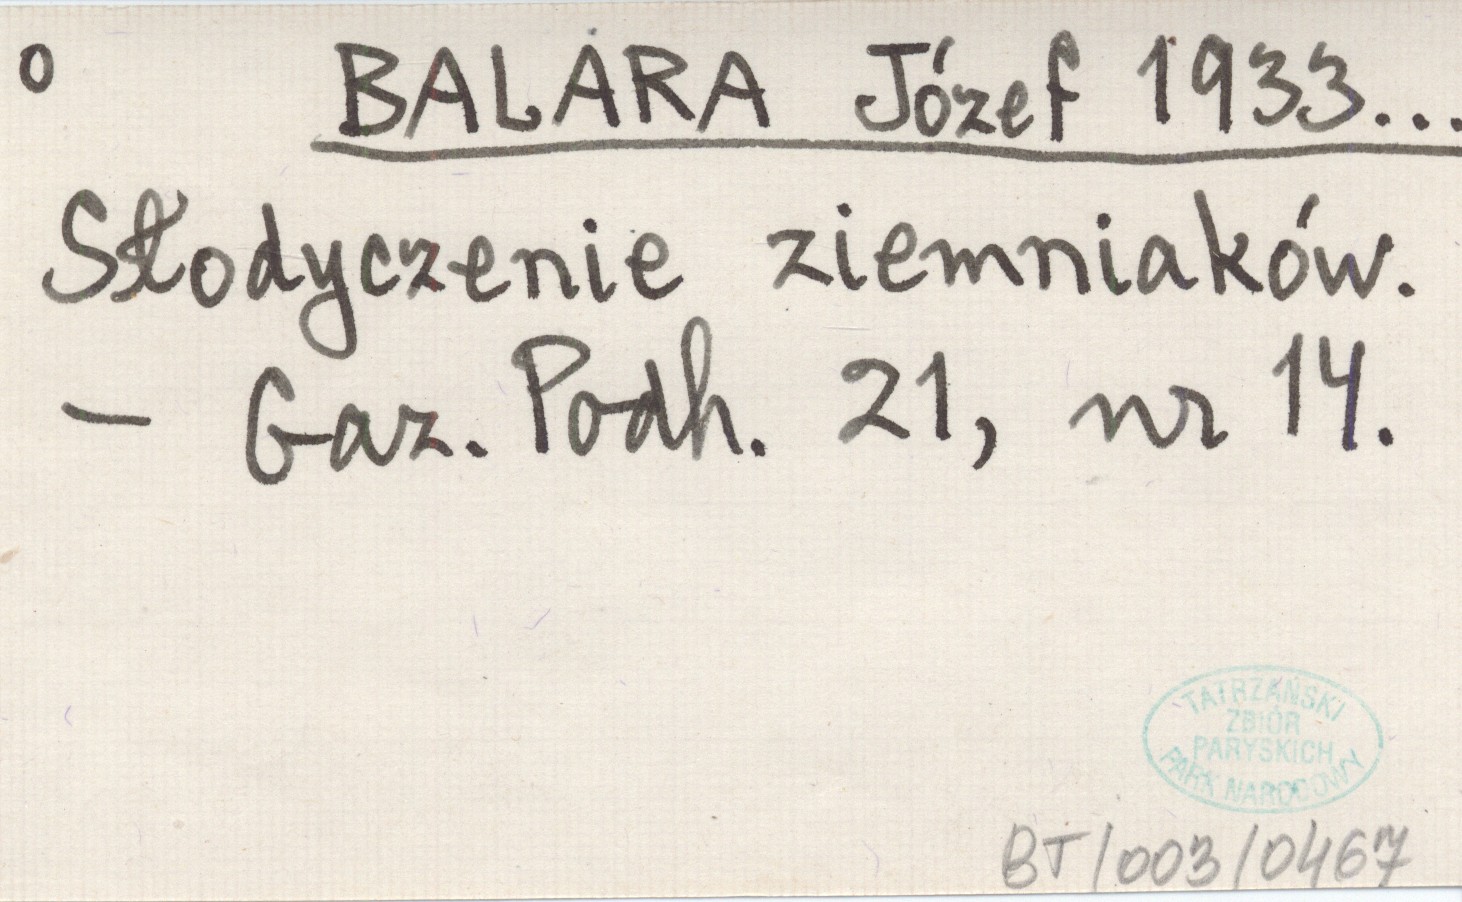 o BALARA Józef 1933...
Słodyczenie ziemniaków.
— Gaz. Podh. 21, nr 14.
TATRZAŃSKI
ZBIÓR
PARYSKICH
PARK NARODOWY
BT/003/0467